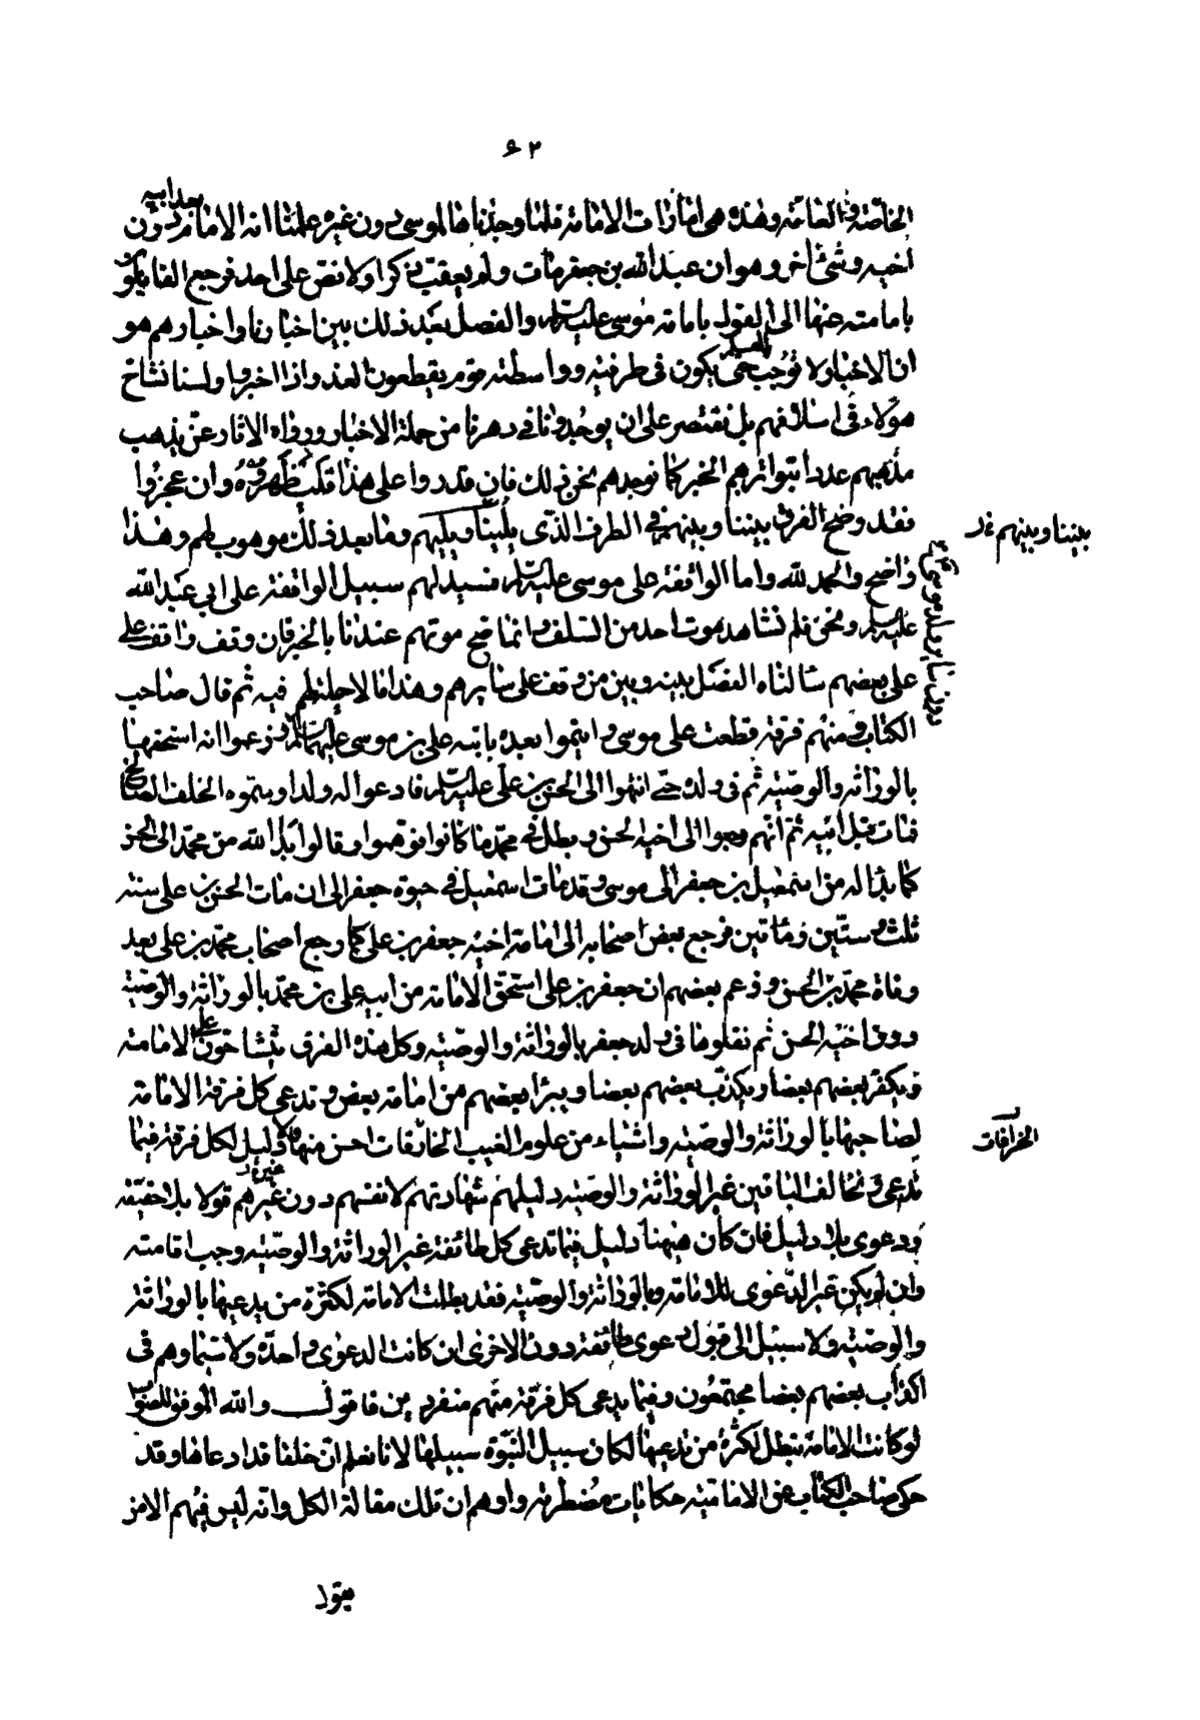 ٦٢
الخاصّة والعامّة وهذه هى امارات الامامة فلمّا وجدناها لموسى دون غيره علمنا انه الامام بعد ابيه دون
اخيه وشئ اخر وهو ان عبد الله بن جعفر مات ولم يعقّب ذكرا ولا نصّ على احد فرجع القايلون
بامامته عنها الى القول بامامة موسى عليه السلام والفصل بعد ذلك بين اخبارنا واخبارهم هو
ان الاخبار لا توجب العلم حتى يكون فى طرفيه وواسطته قوم يقطعون العذر اذا اخبروا ولسنا نشاح
هؤلاء فى اسلافهم بل نقتصر على ان يوجدونا فى دهرنا من حملة الاخبار ورواة الاثار عمّن يذهب
مذهبهم عددا يتواتر بهم الخبر كما نوجدهم نحن ذلك فان قدروا على هذا فليظهروه وان عجزوا
فقد وضح الفرق بيننا وبينهم فى الطرف الذى يلينا ويليهم وما بعد ذلك موهوب لهم وهذا
واضح والحمد لله واما الواقفة على موسى عليه السلام فسبيلهم سبيل الواقفة على ابى عبد الله
عليه السلام ونحن فلم نشاهد موت احد من السلف وانما صح موتهم عندنا بالخبر فان وقف واقف على
على بعضهم سالناه الفصل بينه وبين من وقف على سايرهم وهذا ما لا حيلة لهم فيه ثم قال صاحب
الكتاب ومنهم فرقة قطعت على موسى وايتموا بعده بابنه على بن موسى عليهما السلام وزعموا انه استحقها
بالوراثة والوصيّة ثم فى ولده حتى انتهوا الى الحسن بن على عليه السلام فادعوا له ولدا وسموه الخلف الصالح
فمات قبل ابيه ثم انهم رجعوا الى اخيه الحسن وبطل فى محمد ما كانوا توهموا وقالوا بدا لله من محمد الى الحسن
كما بدا له من اسمعيل بن جعفر الى موسى وقد مات اسمعيل فى حيوة جعفر الى ان مات الحسن بن على سنة
ثلث وستين ومائتين فرجع بعض اصحابه الى امامة اخيه جعفر بن على كما رجع اصحاب محمد بن على بعد
وفاة محمد بن الحسن وزعم بعضهم ان جعفر بن على استحق الامامة من ابيه على بن محمد بالوراثة والوصيّة
دون اخيه الحسن ثم نقلوها فى ولد جعفر بالوراثة والوصيّة وكل هذه الفرق يتشاحون على الامامة
ويكفر بعضهم بعضا ويكذّب بعضهم بعضا ويبرأ بعضهم من امامة بعض وتدعى كل فرقة الامامة
لصاحبها بالوراثة والوصيّة واشياء من علوم الغيب الخارقات احسن منها ولا دليل لكل فرقة فيما
تدعى وتخالف الباقين غير الوراثة والوصيّة دليلهم شهادتهم لانفسهم دون غيرهم قولا بلا حقيقة
ودعوى بلا دليل فان كان هيهنا دليل فيما تدعى كل طائفة غير الوراثة والوصيّة وجب اقامته
وان لم يكن غير الدعوى للامامة بالوراثة والوصيّة فقد بطلت الامامة لكثرة من يدعيها بالوراثة
والوصيّة ولا سبيل الى قبول دعوى طائفة دون الاخرى ان كانت الدعوى واحدة ولا سيما وهم فى
اكذاب بعضهم بعضا مجتمعون وفيما يدعى كل فرقة منهم منفردين فاقول والله الموفق للصواب
لو كانت الامامة تبطل لكثرة من تدعيها لكان سبيل النبوّة سبيلها لانا نعلم ان خلقا قد ادعاها وقد
حكى صاحب الكتاب عن الاماميّة حكايات مضطربة واوهم ان تلك مقالة الكل وانه ليس فيهم الا من
يقول
بيننا وبينهم
الخرافات